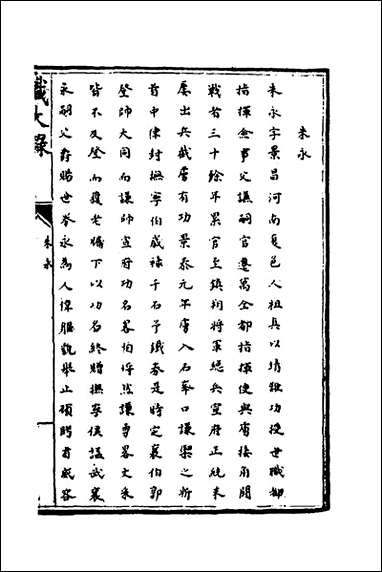 朱永
朱永字景昌河南夏邑人祖真以靖難功授世職都
指揮僉事父謙嗣官遷萬全都指揮使與虜接角鬬
戰者三十餘年累官至鎮朔將軍總兵宣府正統末
屡出兵截虜有功景泰元年虜入石峯口謙禦之斬
首中律封撫寧伯歲祿千石予鐵券是時定襄伯郭
登師大同而謙師宣府功名畧相埒然謙勇畧文采
皆不及登而獲老牖下以功名終贈撫寧侯謚武襄
永嗣父爵賜世券永為人偉軀貌舉止顧眄有威容
朱永